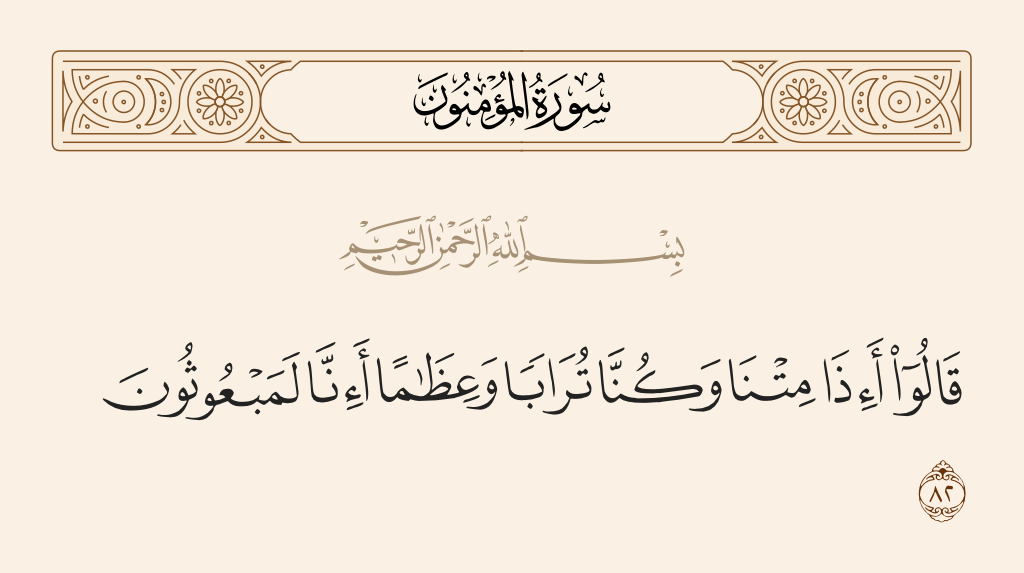 سُورَةُ المُؤْمِنُونَ
بِسْمِ ٱللَّهِ ٱلرَّحْمَٰنِ ٱلرَّحِيمِ
قَالُوٓا۟ أَءِذَا مِتْنَا وَكُنَّا تُرَابًا وَعِظَٰمًا أَءِنَّا لَمَبْعُوثُونَ
٨٢